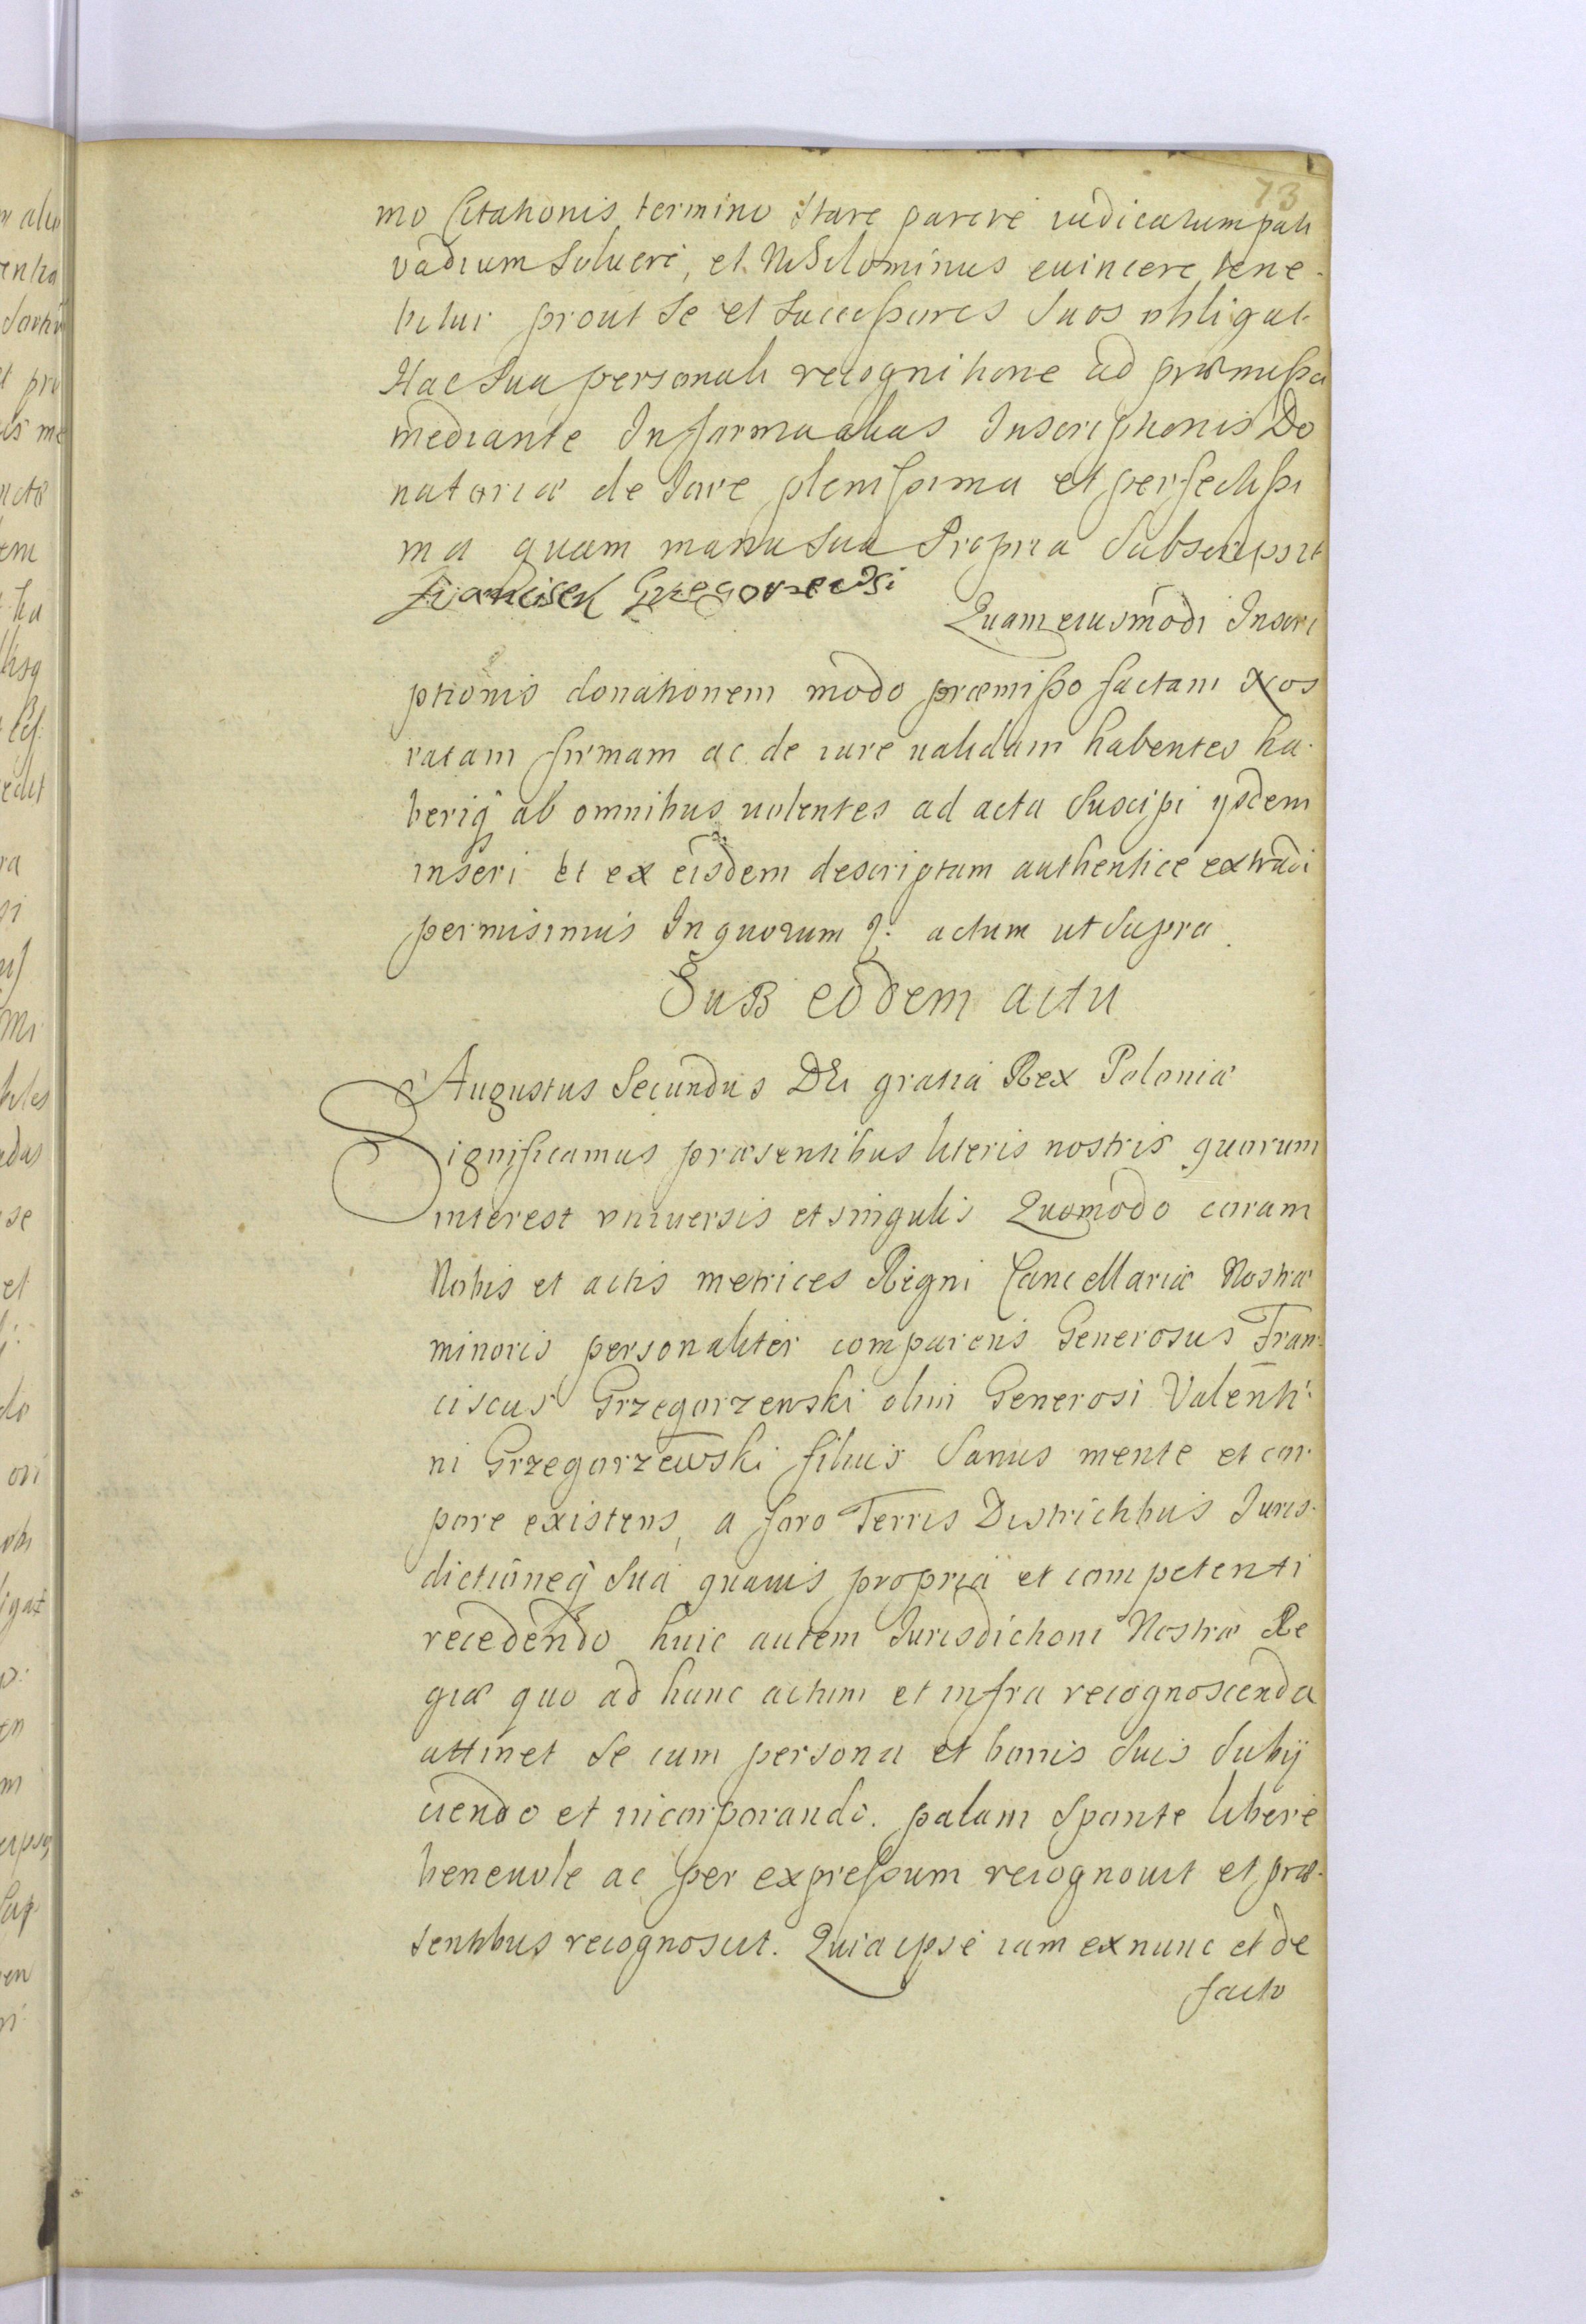 73
mo Citationis termino stare parere iudicatum pati
vadium soluere, et Nihilominus euincere tene-
bitur prout se et Successores suos obligat.
Hac sua personali recognitione ad præmissa
mediante In forma alias Inscriptionis Do
natoriæ de Iure plenissima et perfectissi
ma quam manu sua Propria Subscripsit
Franciszek Grzegorzewski
Quam eiusmodi Inscri
ptionis donationem modo præmisso factam Nos
ratam firmam ac de iure validam habentes ha-
beriq ab omnibus uolentes ad acta suscipi ysdem
inseri et ex eisdem descriptam authentice extradi
permisimus In quorum q: actum ut supra.
Sub eodem actu
Augustus Secundus DEi gratia Rex Poloniæ
Significamus præsentibus literis nostris quorum
interest vniuersis et singulis Quomodo coram
Nobis et actis metrices Regni Cancellariæ Nostræ
minoris personaliter comparens Generosus Fran-
ciscus Grzegorzewski olim Generosi Valenti-
ni Grzegorzewski filius Sanus mente et cor-
pore existens, a foro Terris Districtibus Iuris-
dictioneq sua quauis propria et competenti
recedendo huic autem Iurisdictioni Nostræ Re
giæ quo ad hunc actum et infra recognoscenda
attinet se cum persona et bonis suis subij
ciendo et incorporando. palam sponte libere
beneuole ac per expressum recognouit et præ-
sentibus recognoscit. Quia ipse iam ex nunc et de
facto